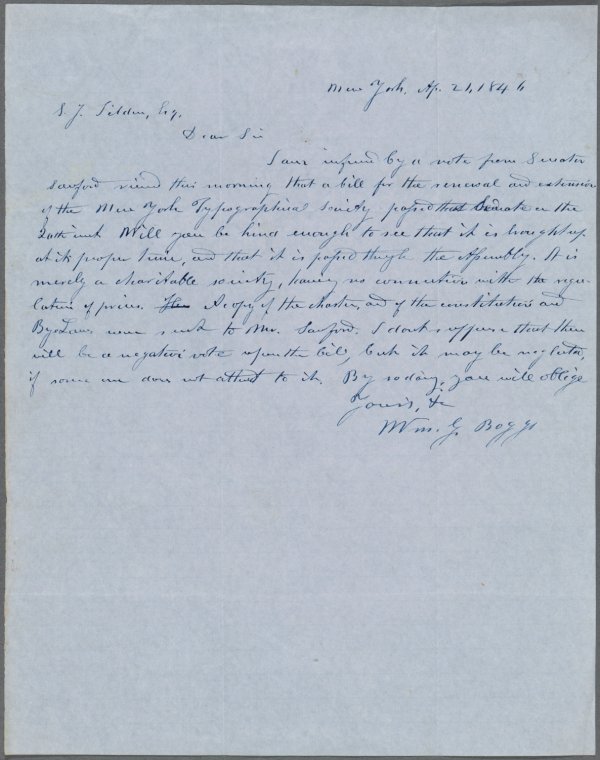 New York, Ap. 21, 1846
S. J. Tilden, Esq,
Dear Sir
I am informed by a note from Senator
Sanford recieved this morning that a bill for the renewal and extension
of the New York Typographical Society, passed that Senate on the
20th inst. Will you be kind enough to see that it is brought up
at its proper time, and that it is passed through the Assembly. It is
merely a charitable society, having no connection with the regu-
lation of prices. The A copy of the charter, and of the constitution and
By-Laws were sent to Mr. Sanford. I don't suppose that there
will be a negative vote upon the bill, but it may be neglected,
if some one does not attend to it. By so doing, you will oblige
Yours, &c
Wm. G. Boggs